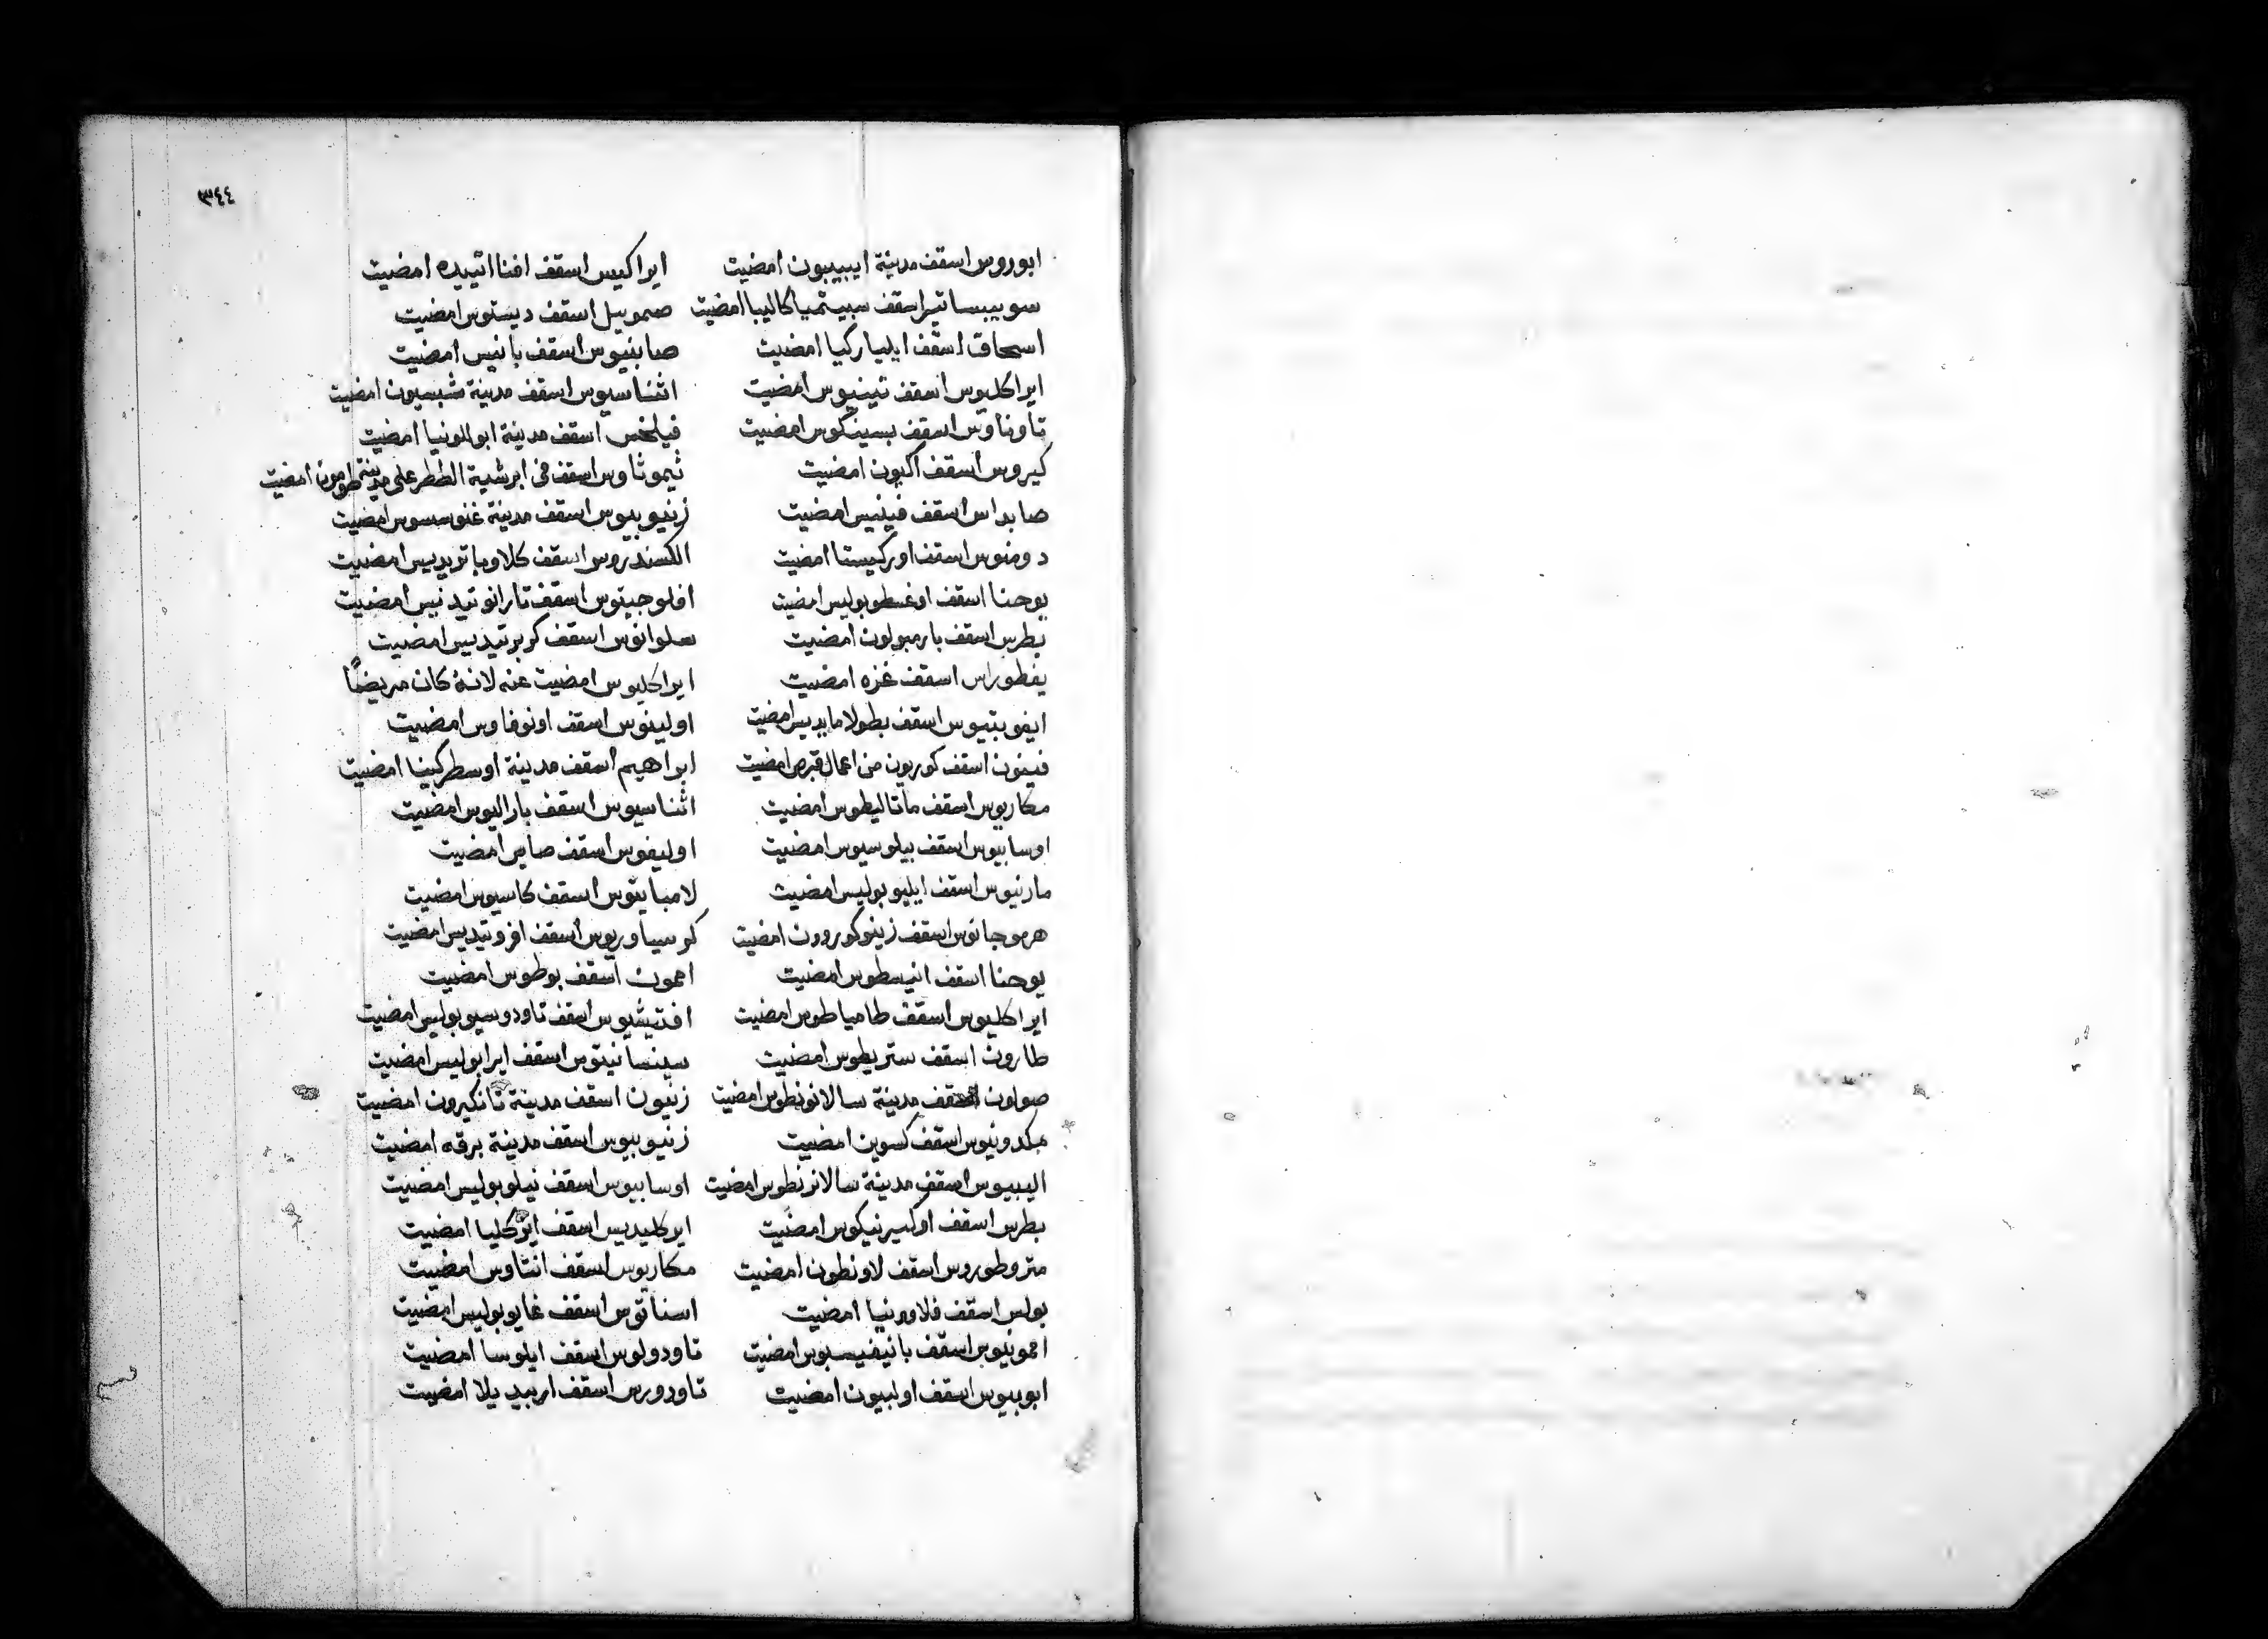 ٣٤٤
ابوروس اسقف مدينة ايبيبون امضيت
سويبساتير اسقف سبيتميا كاليبا امضيت
اسحاق اسقف ايليا ركيا امضيت
ايراكليوس اسقف تينيوس امضيت
تاوناوس اسقف بسينكوس امضيت
كيروس اسقف اكيون امضيت
صابداس اسقف فينيس امضيت
دومنوس اسقف اوركيستا امضيت
يوحنا اسقف اوغسطوبوليس امضيت
بطرس اسقف بارمبولون امضيت
يفطوراس اسقف غزه امضيت
ايفوبتيوس اسقف بطولامايديس امضيت
فينون اسقف كوريون من اعمال قبرص امضيت
مكاريوس اسقف ماتاليطوس امضيت
اوسابيوس اسقف بيلوسيوس امضيت
مارنيوس اسقف ايليوبوليس امضيت
هرموجانوس اسقف زينوكورورن امضيت
يوحنا اسقف انيسطوس امضيت
ايراكليوس اسقف طامياطوس امضيت
طارون اسقف ستريطوس امضيت
صولون اسقف مدينة سالانونطوس امضيت
مكدونيوس اسقف كسوين امضيت
اليبيوس اسقف مدينة سالانرنطوس امضيت
بطرس اسقف اوكسيرنيكوس امضيت
متروطوروس اسقف لاونطون امضيت
بولس اسقف فلاورنيا امضيت
امونيوس اسقف بانيفيسوس امضيت
ابوبيوس اسقف اولبيون امضيت
ايراكيس اسقف افنااتييده امضيت
صموييل اسقف ديستوس امضيت
صابنيوس اسقف بانيس امضيت
اثناسيوس اسقف مدينة شبسيون امضيت
فيلخس اسقف مدينة ابوللونيا امضيت
ثيموثاوس اسقف في ابرشية الططر على مدينة طومون امضيت
زنيوبيوس اسقف مدينة غنوسسوس امضيت
الكسندروس اسقف كلاوباتريديس امضيت
افلوجيتوس اسقف تارانوتيدنيس امضيت
سلوانوس اسقف كربرتيديس امضيت
ايراكليوس امضيت عنه لانه كان مريضًا
اولينوس اسقف اونوفاوس امضيت
ابراهيم اسقف مدينة اوسطركينا امضيت
اثناسيوس اسقف باراليوس امضيت
اوليفوس اسقف صايس امضيت
لامبايتوس اسقف كاسيوس امضيت
كوسياوريوس اسقف افروتيديس امضيت
امون اسقف بوطوس امضيت
افتيشيوس اسقف تاودوسيوبوليس امضيت
سينسانيتوس اسقف ايرابوليس امضيت
زنيون اسقف مدينة تانكيرون امضيت
زنيوبيوس اسقف مدينة برقه امضيت
اوسابيوس اسقف نيلوبوليس امضيت
ايركليديس اسقف ايركليا امضيت
مكاريوس اسقف انتاوس امضيت
اسناتوس اسقف غايوبوليس امضيت
تاودولوس اسقف ايلوسا امضيت
تاودورس اسقف اربيديلا امضيت